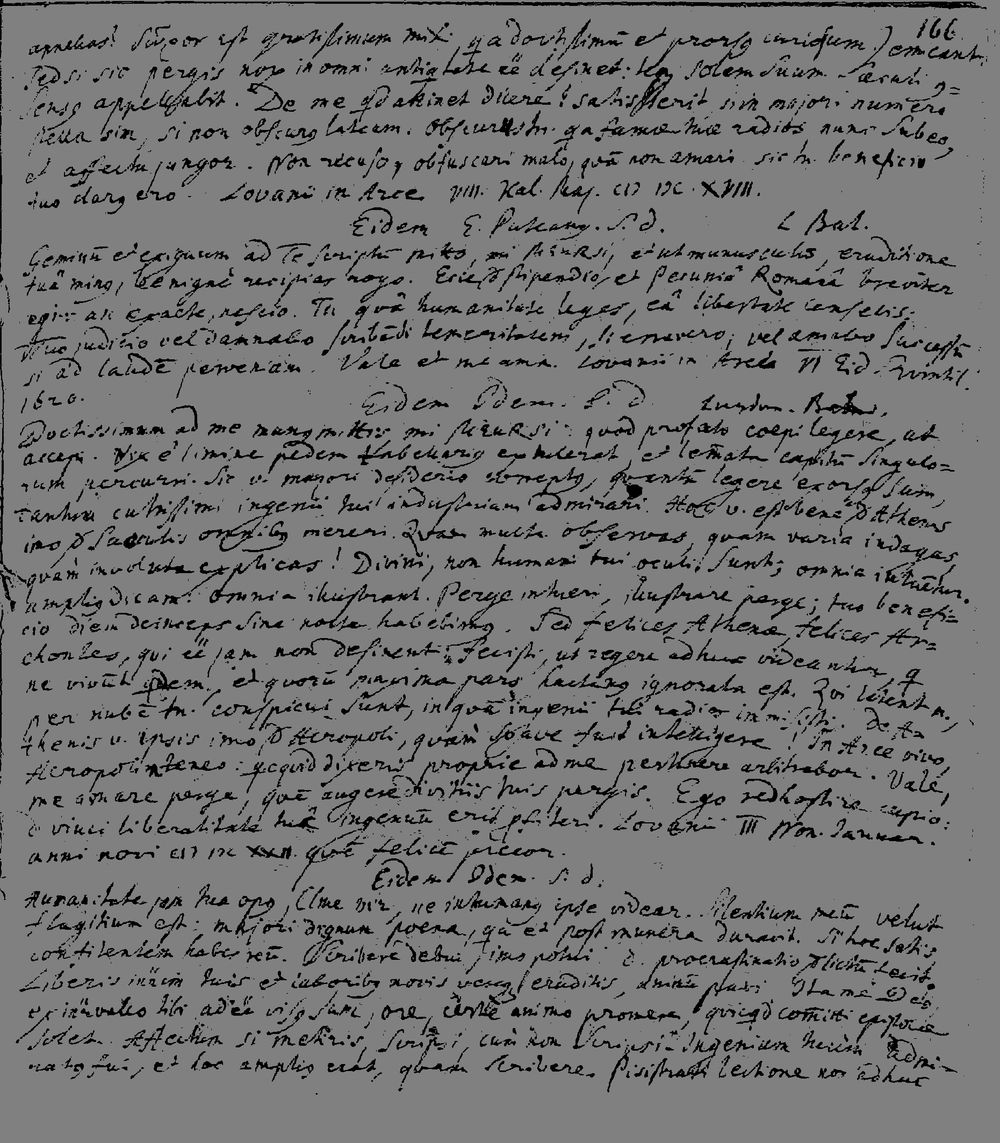 166
appellas! Stupor est gratissimum mihi, qa doctissimū et prorsq
sed si sic pergis nox in omni antiqtate eē desinet: leq solem suum
sensq appellabit. De me qd attinet dicere? satis numero
stella sim, si non obscurq lateam. qa famae tuae radios nunc subeo,
et affectu jungor. Non recusoq obfuscari malo, quā non amari. sic tn. beneficio
tuo clarq ero. Lovanii in Arce VIII. Kal. Maj. CIƆ IƆC XVIII.
Eidem E. Puteanq. S. d. L. Bat.
Geminū et exiguum ad Te scriptū mitto, mi MEURSI, et ut munusculū, eruditione
tuâ minq, benignè recipias rogo. Stipendio, et Pecuniâ Romanâ breviter
egi: an exacte, nescio. Tu quâ humanitate leges, eâ libertate censebis.
Tuo judicio vel damnabo scribēdi temeritatem, si erravero; vel amabo successū
si ad laudē perveniam. Vale et me ama. Lovanii in Arce VI Eid. Quintil.
1620.
Eidem Idem. S. d. Lugdun. Bat.
Doctissimum ad me munq mittis mi MEURSI: quod profato coepi legere, ut
accepi. Vix è limine pedem tabellariq extulerat, et lemata capitū singulo=
rum percurri. Sic v. majori desiderio correptq, quantū legere exorsq sum,
tantum cultissimi ingenii tui industriam admirari. Hoc v. est bene d Athenis
imo d saeculis omnibq mereri. Quam multa observas, quam varia indagas,
quam involuta explicas! Divini, non humani tui oculi sunt; omnia intuētur.
ampliq dicam: omnia illustrant. Perge intueri, illustrare perge; tuo benefi=
cio diem deinceps sine nocte habebimq. Sed felices Athenae, felices Ar=
chontes, qui eē jam non desinent: Fecisti, ut regere adhuc videantur, q
ne vivūt qdem, et quorū maxima pars hactenq ignorata est. Qui latent n.,
per nubē tn. conspicui sunt, in quā ingenii tui radios immisisti. De A=
thenis v. ipsis imo d Acropoli, quàm suave fuit intelligere! In Arce vivo,
Acropolin teneo: qcquid dixeris proprie ad me pertinere arbitrabor. Vale,
me amare perge, quē augere divitiis tuis pergis. Ego redhostire cupio:
d vinci liberalitate tuâ ingenuū erit pfiteri. Lovanii III Non. Januar.
anni novi CIƆ IƆC XXII. quē felicē precor.
Eidem Idem. S. d.
Humanitate jam tua opq, Clme vir, ne inhumanq ipse videar. Silentium meū velut
flagitium est: majori dignum poena, qa et post munera duravit. Si hoc satis
confitentem habes reū. Scribere debui imo potui: d. procrastinatio dlictū fecit.
Liberis intrim tuis et laboribq novis eruditis, animū pavi. Ita me
ex intrvallo tibi adeē visq sum, ore, certè animo promere quicqd comitti epistolae
solet. Affectum si metiris, scripsi, cum non scripsi. Ingenium tuum admi=
ratq fui, et hoc ampliq erat, quam scribere. Pisistrati lectione nos adhuc